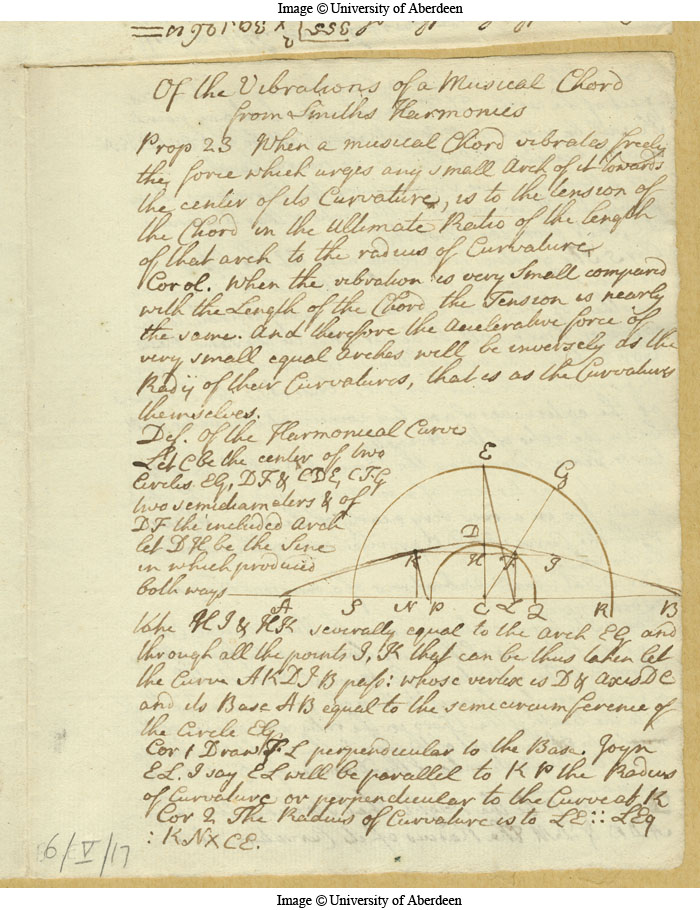 Image © University of Aberdeen
355
Of the Vibrations of a Musical Chord
from Smiths Harmonics
Prop 23 When a musical Chord vibrates freely
the force which urges any small Arch of it towards
the center of its Curvature, is to the tension of
the Chord in the Ultimate Ratio of the length
of that arch to the radius of Curvature
Corol. When the vibration is very small compared
with the Length of the Chord the Tension is nearly
the same. And therefore the Accelerative force of
very small equal arches will be inversely as the
Radij of their Curvatures, that is as the Curvatures
themselves.
Def. of the Harmonical Curve
Let C be the center of two
Circles EG, DF & CDE, CFG
two semidiameters & of
DF the included Arch
let DH be the Sine
in which produced
both ways
E
G
D
K H F I
A S N P C L Q R B
take HI & HK severally equal to the arch EG and
through all the points I, K that can be thus taken let
the Curve AKDIB pass: whose vertex is D & axis DC
and its Base AB equal to the semicircumference of
the Circle EG
Cor 1 Draw FL perpendicular to the Base. Joyn
EL. I say EL will be parallel to KP the Radius
of Curvature or perpendicular to the Curve at K
Cor 2 The Radius of Curvature is to LE :: LEq
: KN×CE.
6/V/17
Image © University of Aberdeen